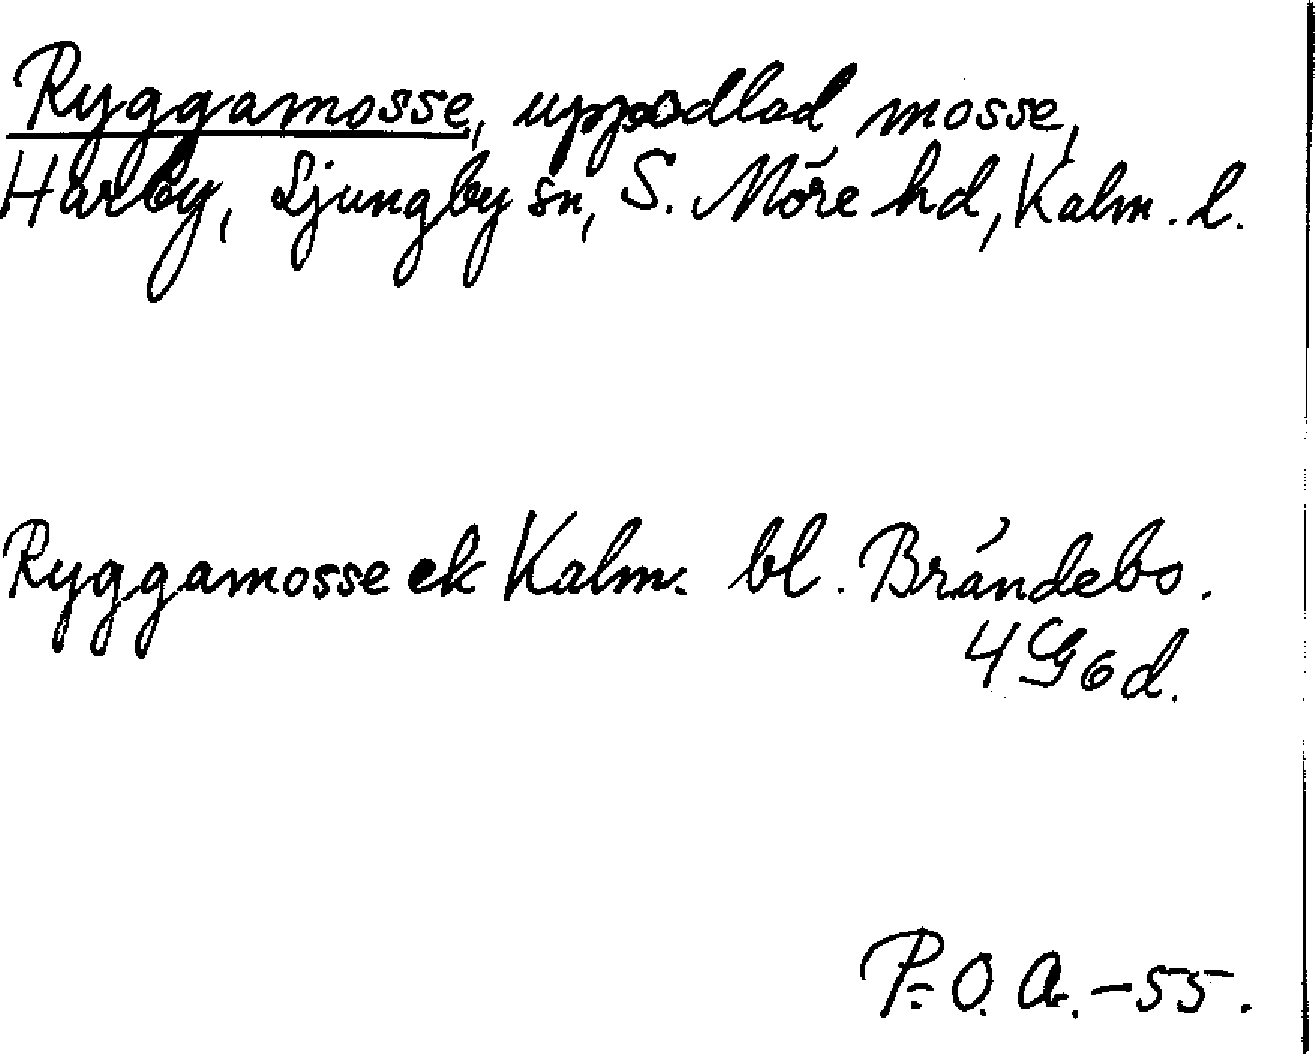 Ryggamosse, uppodlad mosse,
Harby, Ljungby sn, S. Möre hd, Kalm. l.
Ryggamosse ek Kalm. bl. Brändebo.
4 G 6 d.
P:O. A.-55.